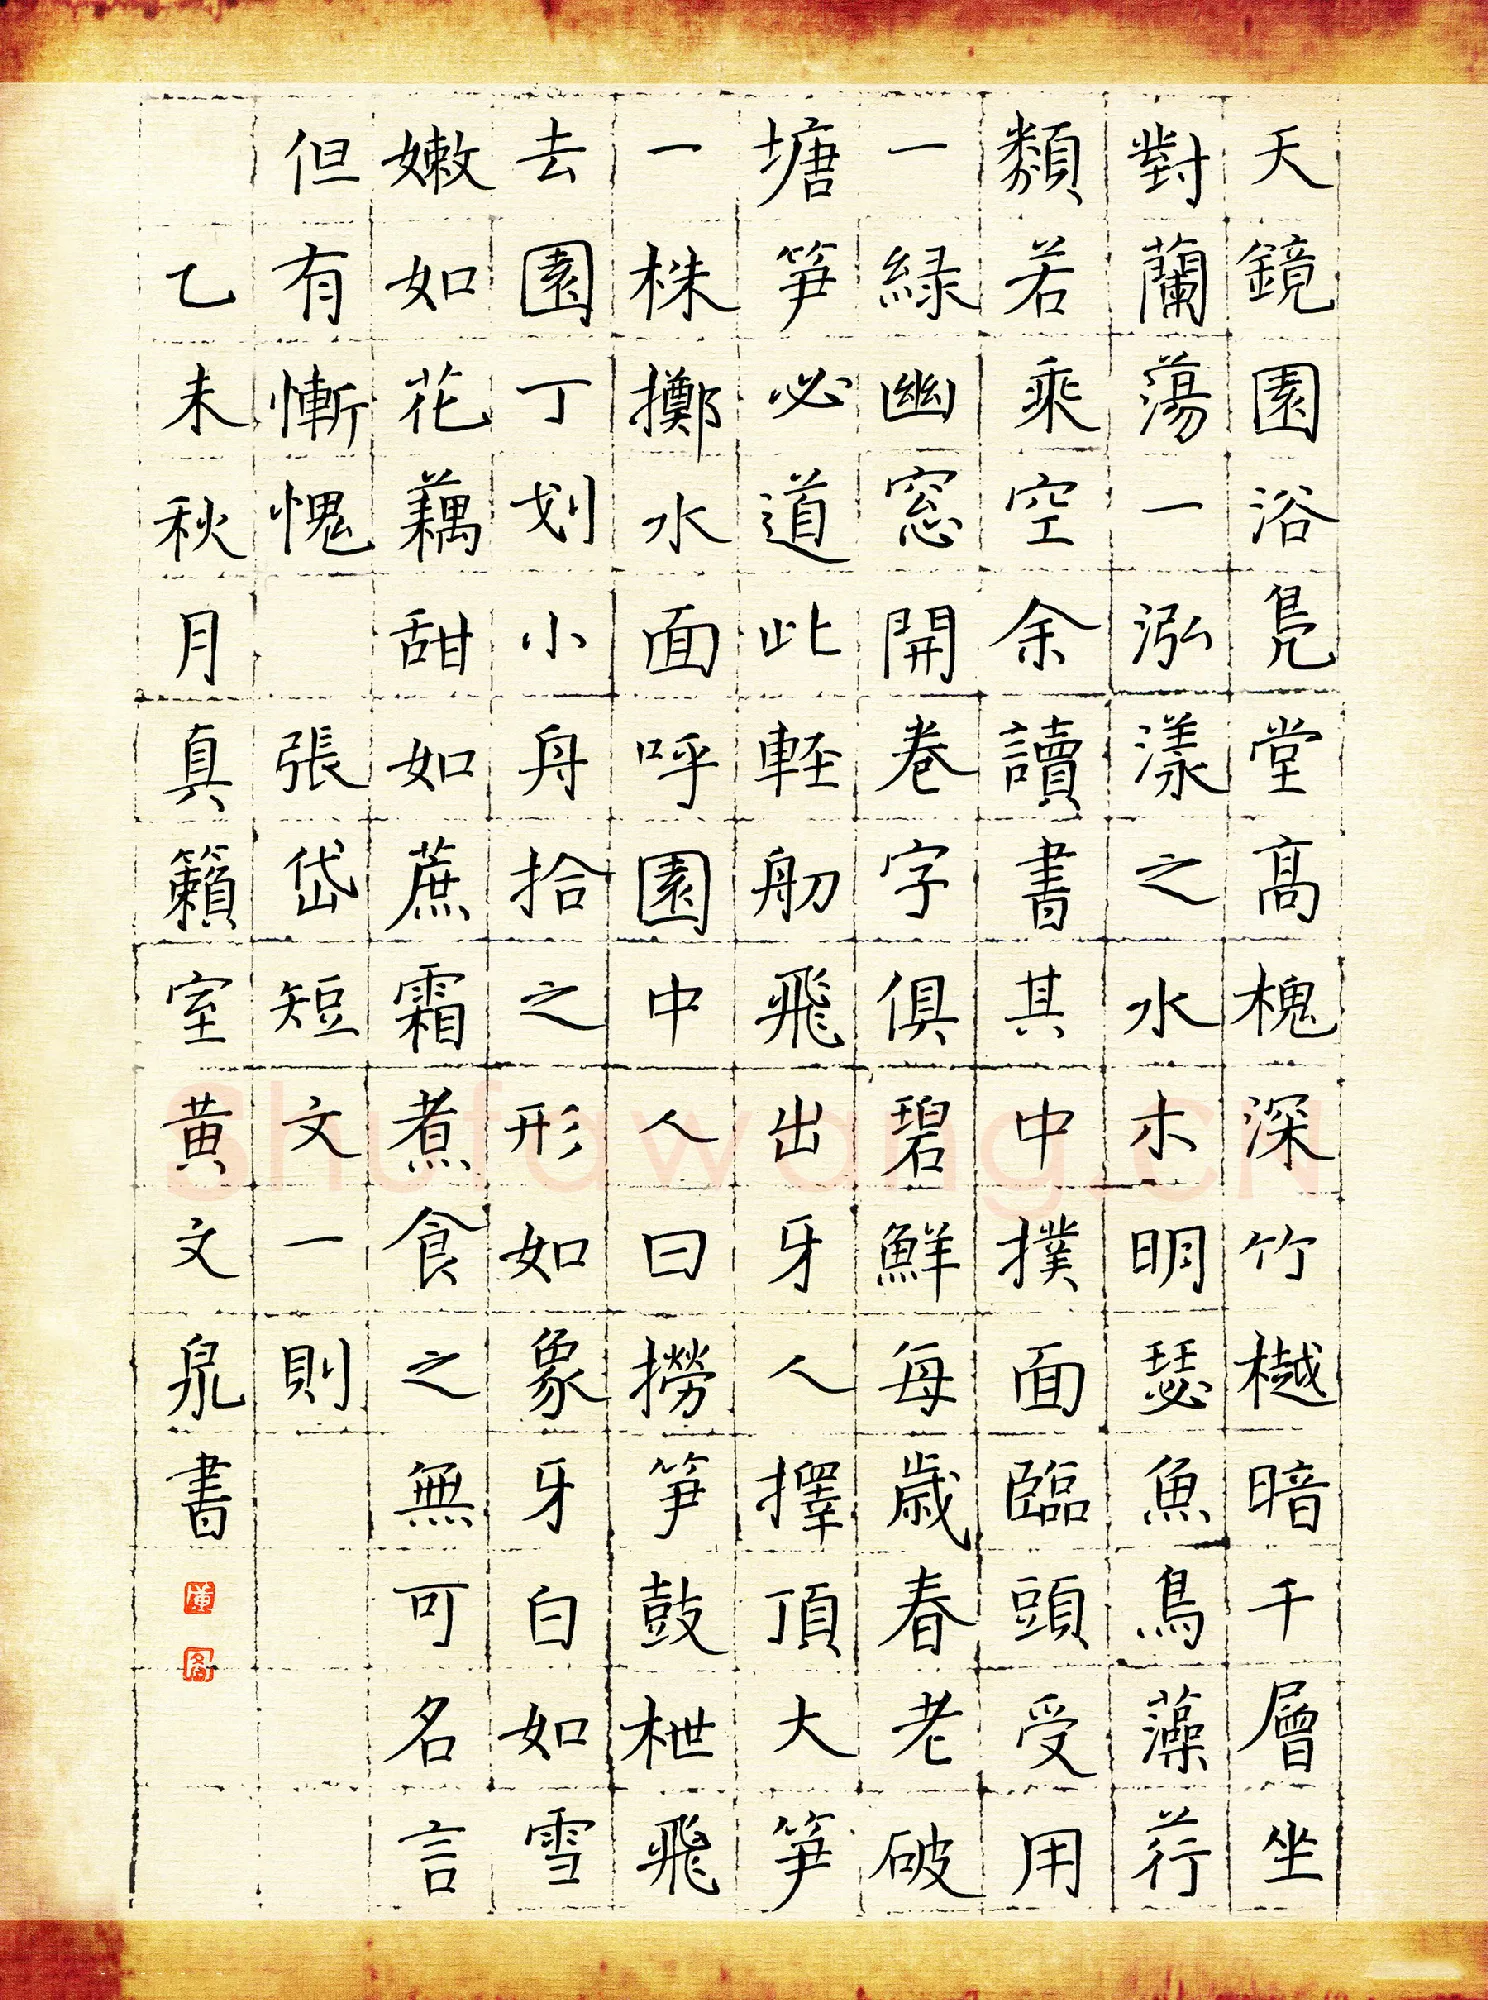 天鏡園浴鳧堂高槐深竹樾暗千層坐
對蘭蕩一泓漾之水木明瑟魚鳥藻荇
類若乘空余讀書其中撲面臨頭受用
一緑幽窓開卷字俱碧鮮每歳春老破
塘笋必道此軽舠飛出牙人擇頂大笋
一株擲水面呼園中人曰撈笋鼓枻飛
去園丁划小舟拾之形如象牙白如雪
嫩如花藕甜如蔗霜煮食之無可名言
但有慚愧 張岱短文一則
乙未秋月真籟室黄文泉書
Shufawang.CN